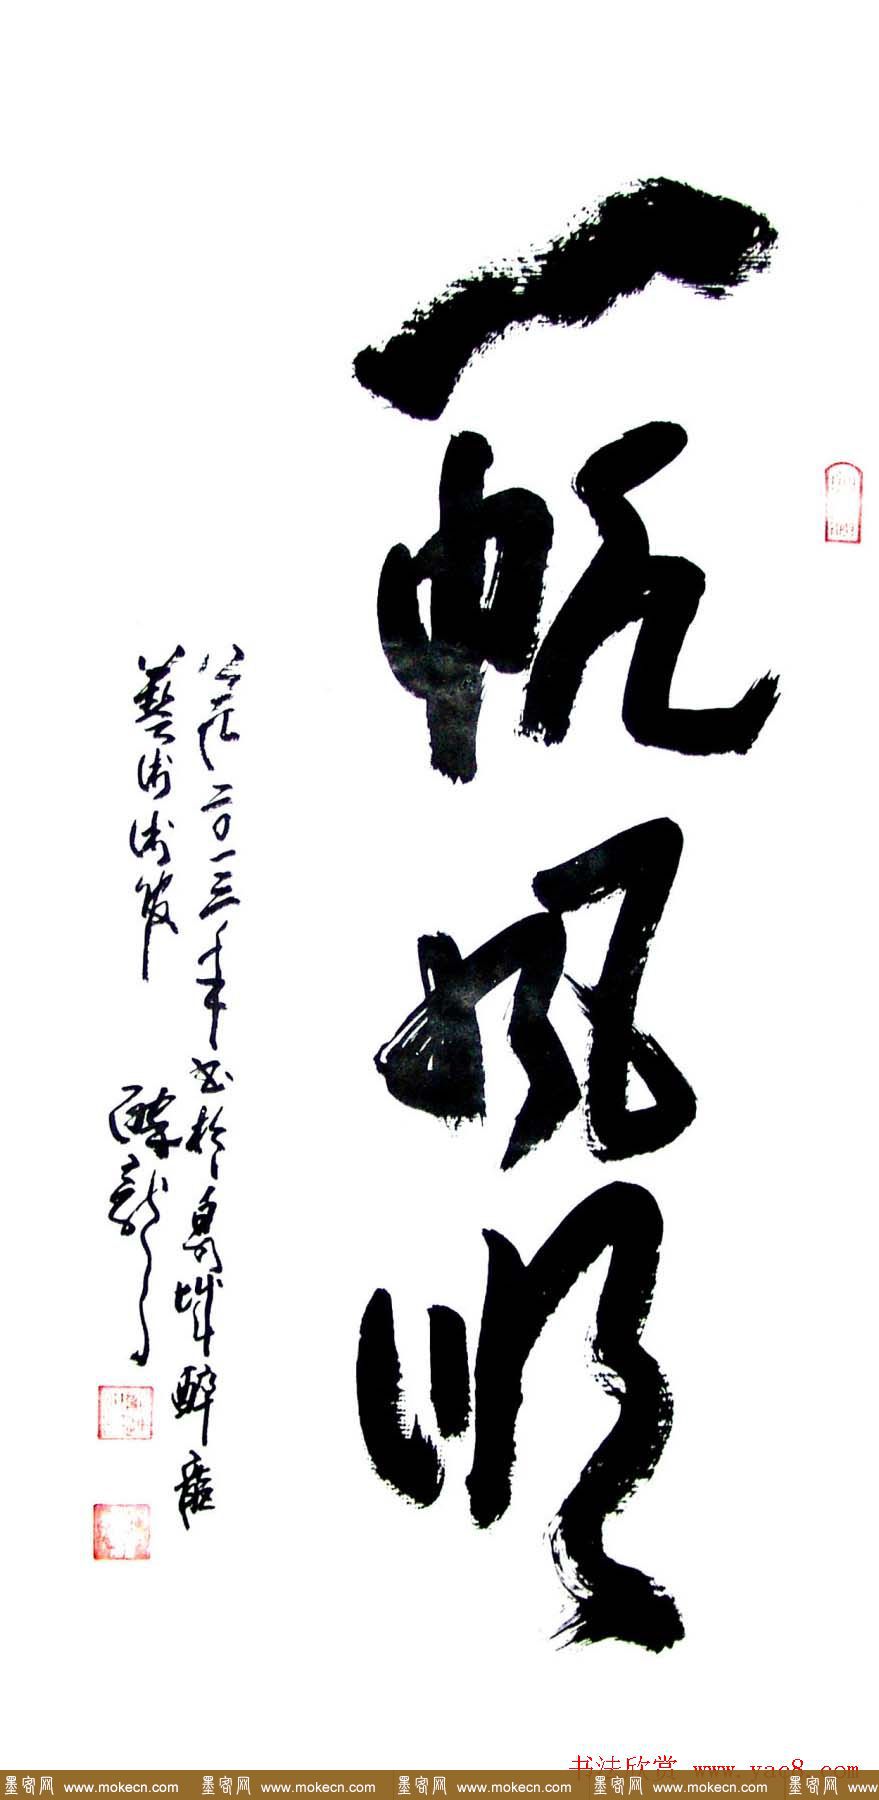 一帆风顺
公元二〇一三年书於白帝城醉龙
艺术
醉龙
书法欣赏 www.yac8.com
墨客网 www.mokecn.com 墨客网 www.mokecn.com 墨客网 www.mokecn.com 墨客网 www.mokecn.com 墨客网 www